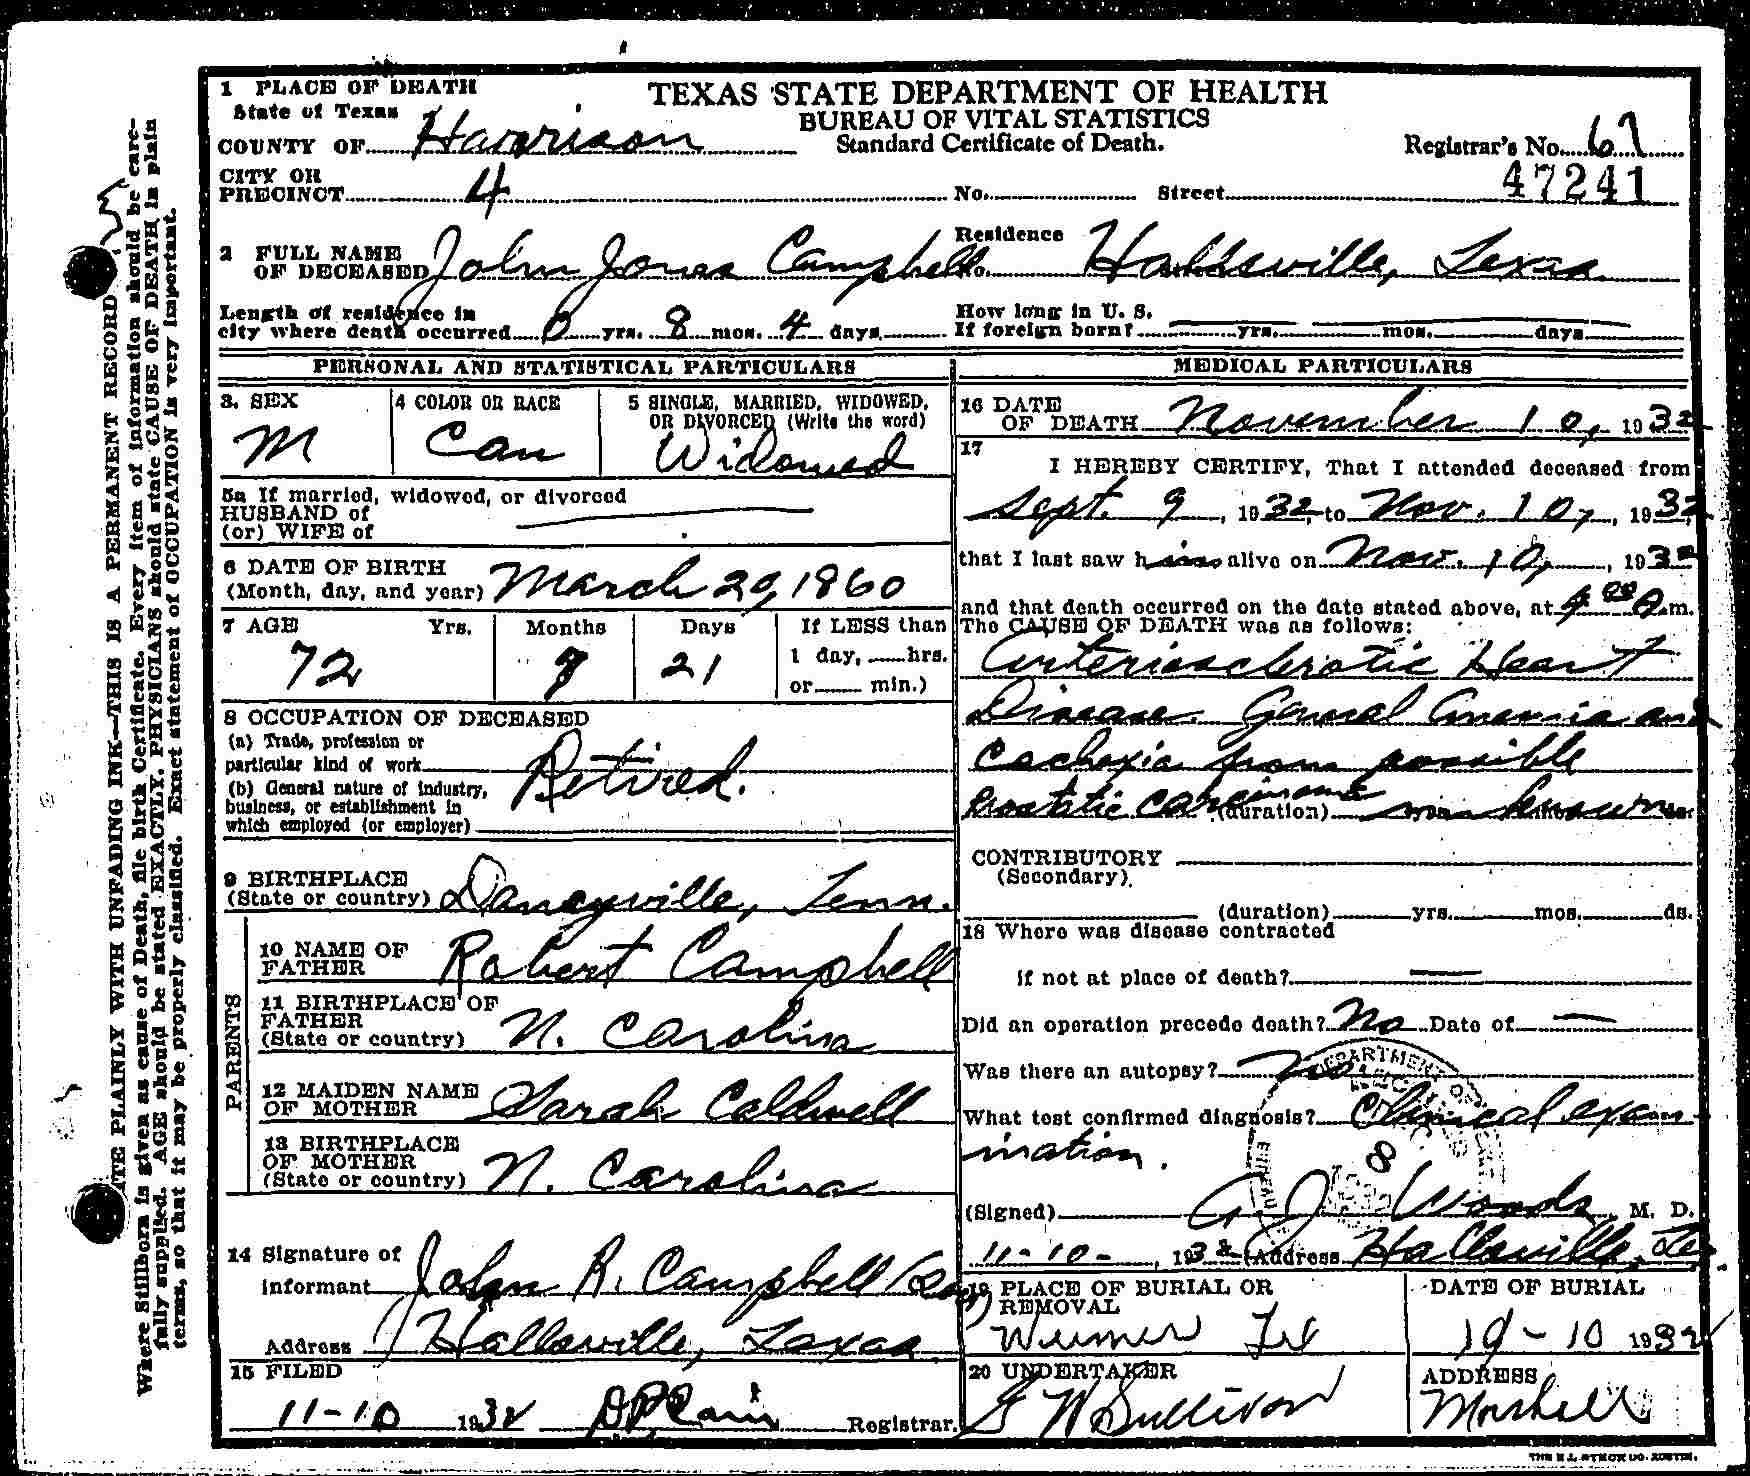 1 PLACE OF DEATH
State of Texas
COUNTY OF Harrison
CITY OR
PRECINCT 4
TEXAS STATE DEPARTMENT OF HEALTH
BUREAU OF VITAL STATISTICS
Standard Certificate of Death.
Registrar's No. 67
47241
No. Street
2 FULL NAME
OF DECEASED John Jones Campbell
Residence
No. Hallsville, Texas
Length of residence in
city where death occurred 0 yrs. 8 mos. 4 days
How long in U. S.
If foreign born? yrs. mos. days
PERSONAL AND STATISTICAL PARTICULARS
3. SEX
M
4 COLOR OR RACE
Cau
5 SINGLE, MARRIED, WIDOWED,
OR DIVORCED (Write the word)
Widowed
5a If married, widowed, or divorced
HUSBAND of
(or) WIFE of
6 DATE OF BIRTH
(Month, day, and year) March 20, 1860
7 AGE Yrs. Months Days If LESS than
72 21 1 day, hrs.
or min.)
8 OCCUPATION OF DECEASED
(a) Trade, profession or
particular kind of work Retired.
(b) General nature of industry,
business, or establishment in
which employed (or employer)
9 BIRTHPLACE
(State or country) Dancyville, Tenn.
PARENTS
10 NAME OF
FATHER Robert Campbell
11 BIRTHPLACE OF
FATHER
(State or country) N. Carolina
12 MAIDEN NAME
OF MOTHER Sarah Caldwell
13 BIRTHPLACE
OF MOTHER
(State or country) N. Carolina
14 Signature of
informant John R. Campbell (Son)
Address Hallsville, Texas
15 FILED
11-10 1932 Registrar.
MEDICAL PARTICULARS
16 DATE
OF DEATH November 10, 1932
17
I HEREBY CERTIFY, That I attended deceased from
Sept. 9, 1932, to Nov. 10, 1932,
that I last saw him alive on Nov. 10, 1932
and that death occurred on the date stated above, at A.m.
The CAUSE OF DEATH was as follows:
Arteriosclerotic Heart
Disease. General Anemia and
Cachexia from possible
prostatic carcinoma (duration) unknown
CONTRIBUTORY
(Secondary).
(duration) yrs. mos. ds.
18 Where was disease contracted
if not at place of death?
Did an operation precede death? No Date of
Was there an autopsy? No
What test confirmed diagnosis? Clinical exam-
ination.
(Signed) J. Woods, M. D.
11-10-, 1932 (Address Hallsville, Tex
19 PLACE OF BURIAL OR
REMOVAL
Weimer Tex
DATE OF BURIAL
1932
20 UNDERTAKER
G W Sullivan
ADDRESS
Marshall
WRITE PLAINLY WITH UNFADING INK—THIS IS A PERMANENT RECORD.
Where Stillborn is given as cause of Death, file birth Certificate. Every item of information should be care-
fully supplied. AGE should be stated EXACTLY. PHYSICIANS should state CAUSE OF DEATH in plain
terms, so that it may be properly classified. Exact statement of OCCUPATION is very important.